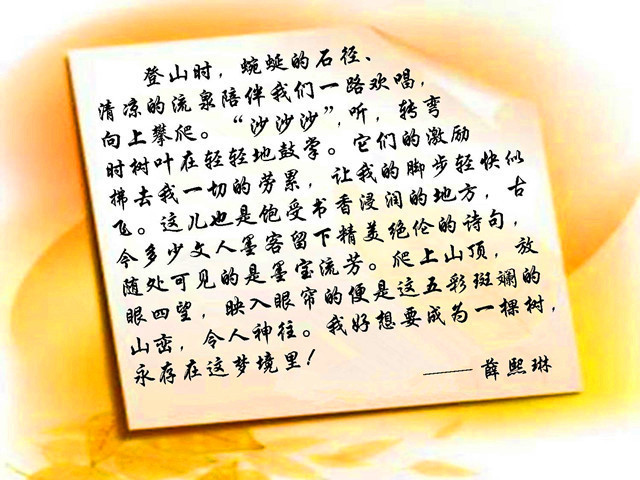 登山时，蜿蜒的石径、
清凉的流泉陪伴我们一路欢唱，
向上攀爬。“沙沙沙”，听，转弯
时树叶在轻轻地鼓掌。它们的激励
拂去我一切的劳累，让我的脚步轻快似
飞。这儿也是饱受书香浸润的地方，古
今多少文人墨客留下精美绝伦的诗句，
随处可见的是墨宝流芳。爬上山顶，放
眼四望，映入眼帘的便是这五彩斑斓的
山峦，令人神往。我好想要成为一棵树，
永存在这梦境里！
——薛熙琳